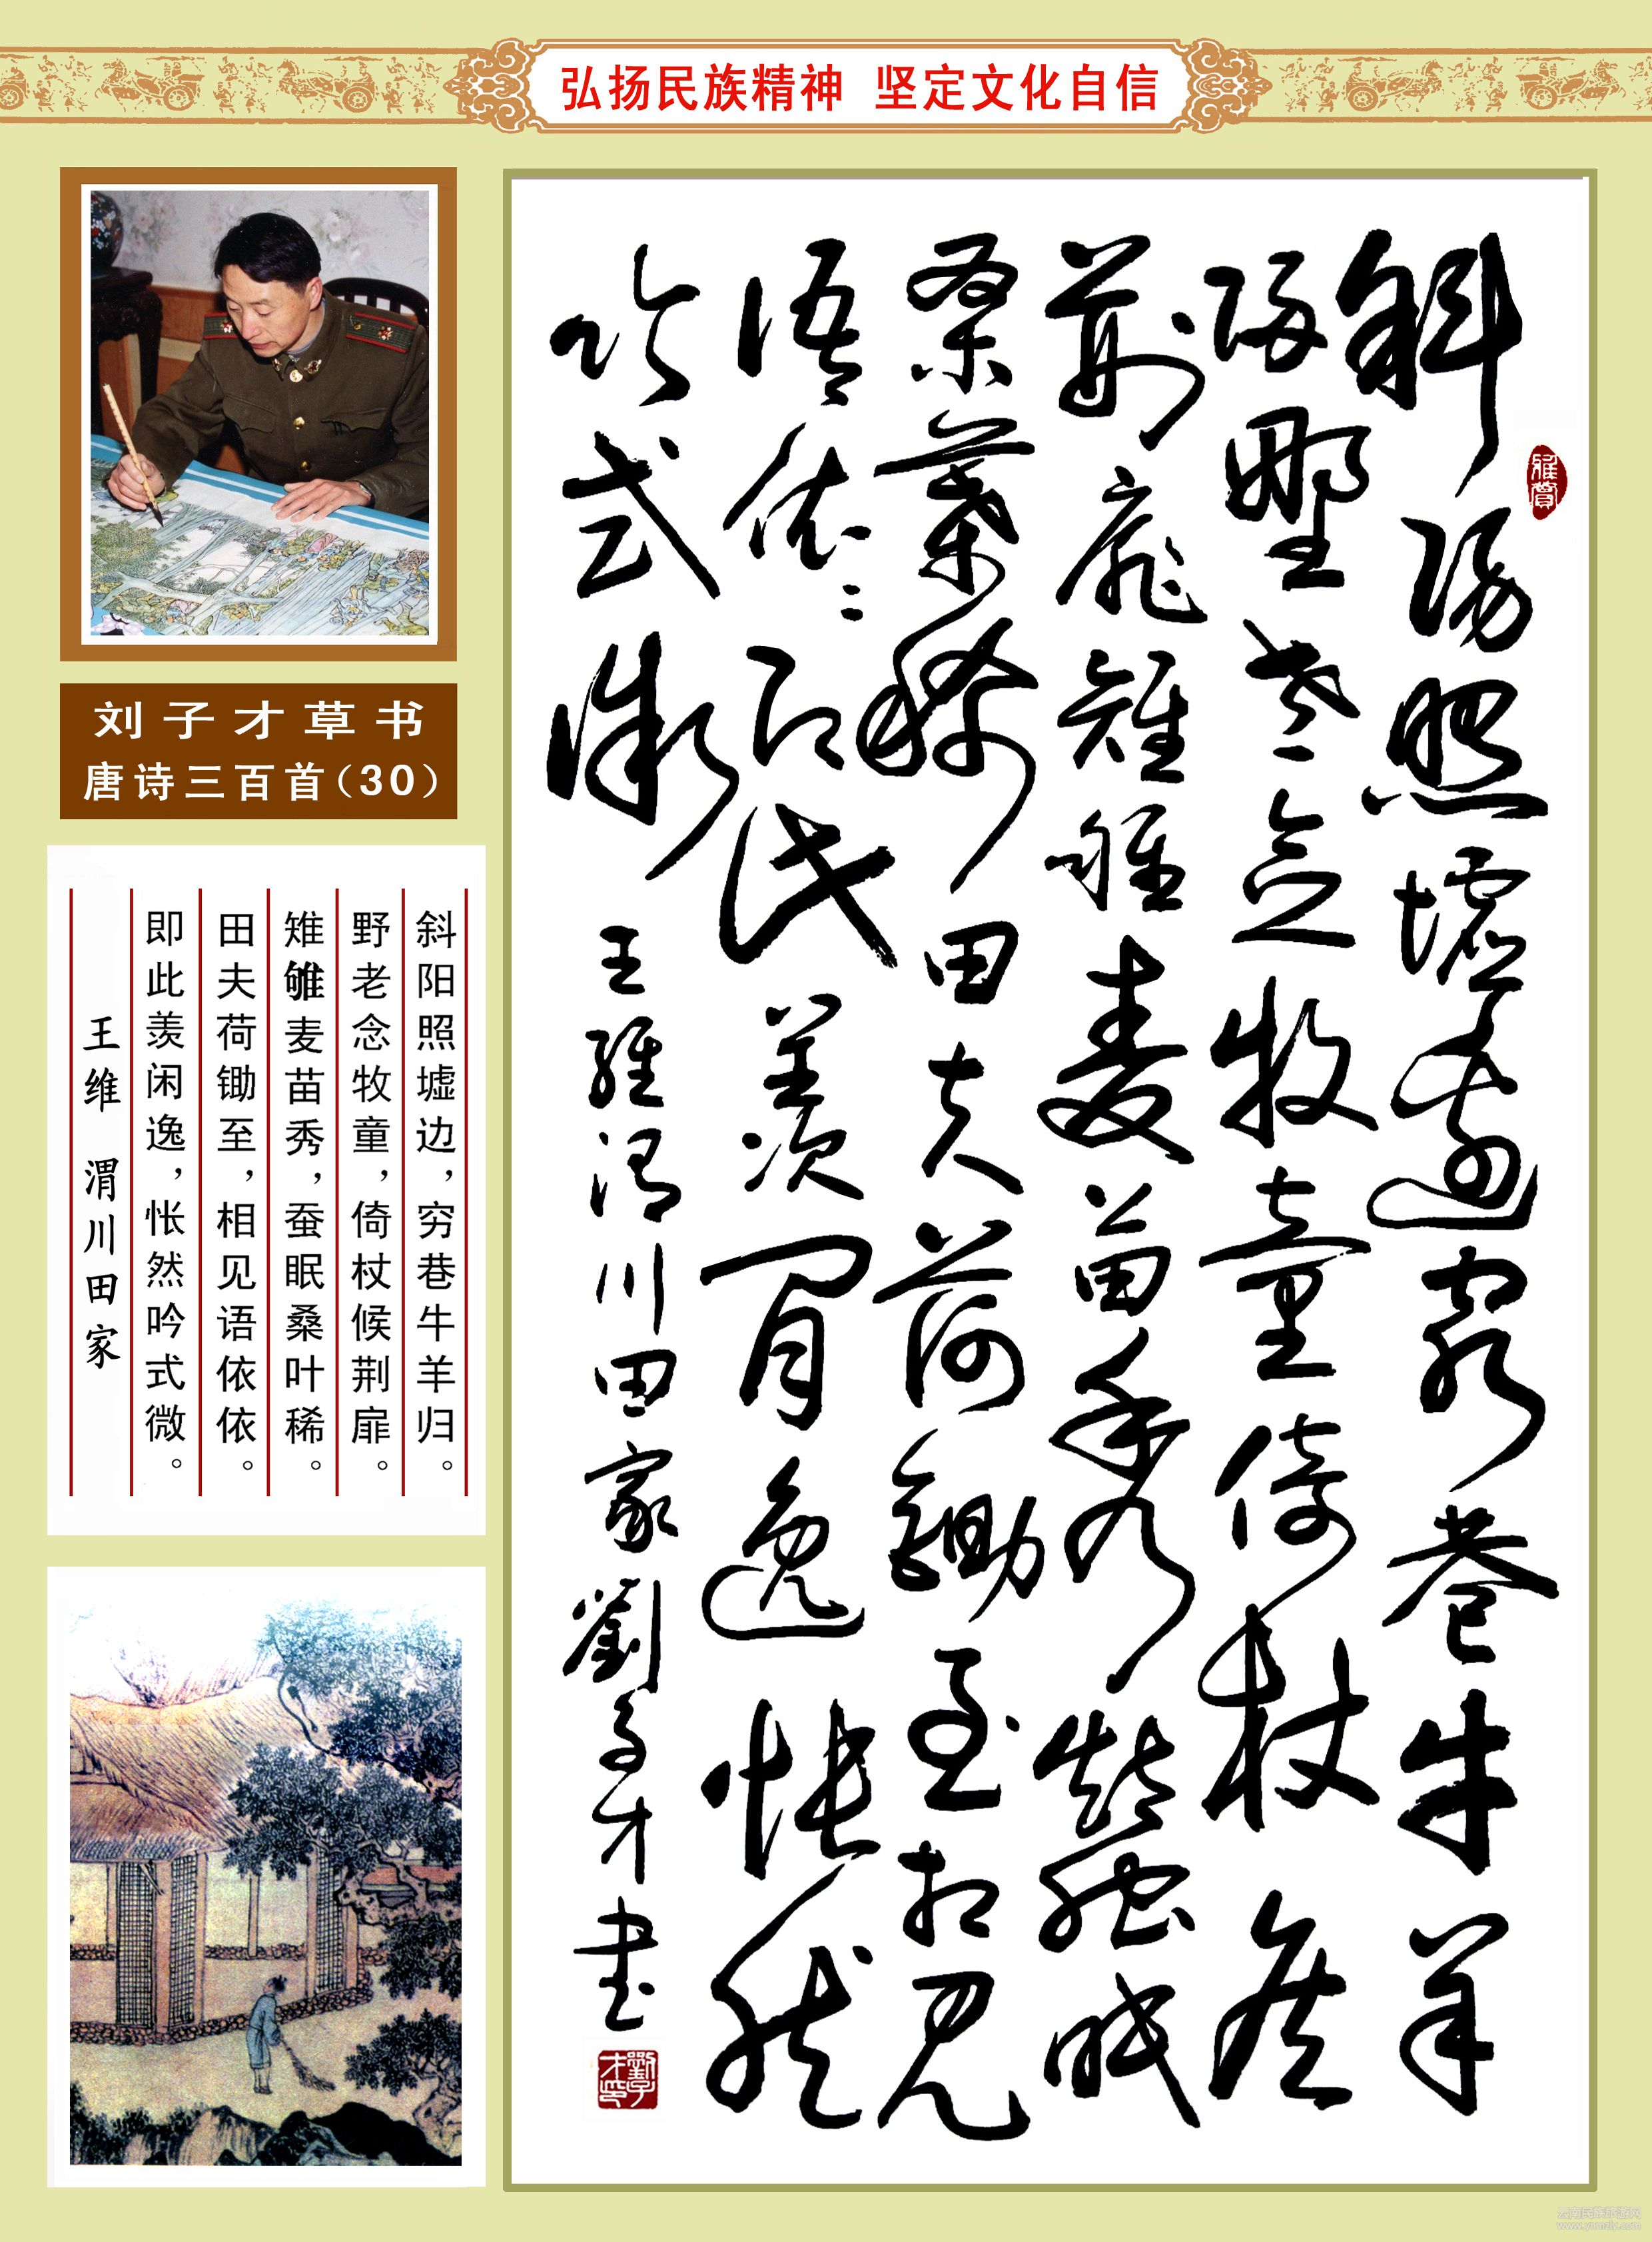 弘扬民族精神 坚定文化自信
刘子才草书
唐诗三百首(30)
斜阳照墟边,穷巷牛羊归。
野老念牧童,倚杖候荆扉。
雉雊麦苗秀,蚕眠桑叶稀。
田夫荷锄至,相见语依依。
即此羡闲逸,怅然吟式微。
王维 渭川田家
斜陽照墟邊窮巷牛羊
歸野老念牧童倚杖候
荆扉雉雊麦苗秀蠶眠
桑葉稀田夫荷鋤至相見
語依依即此羨閒逸悵然
吟式微 王維渭川田家劉子才書
雅賞
劉子才印